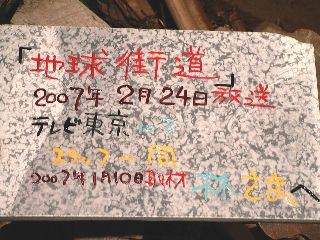 「地球街道」
2007年 2月24日放送
テレビ東京
スタッフ一同
2007年1月10日取材 林さまへ